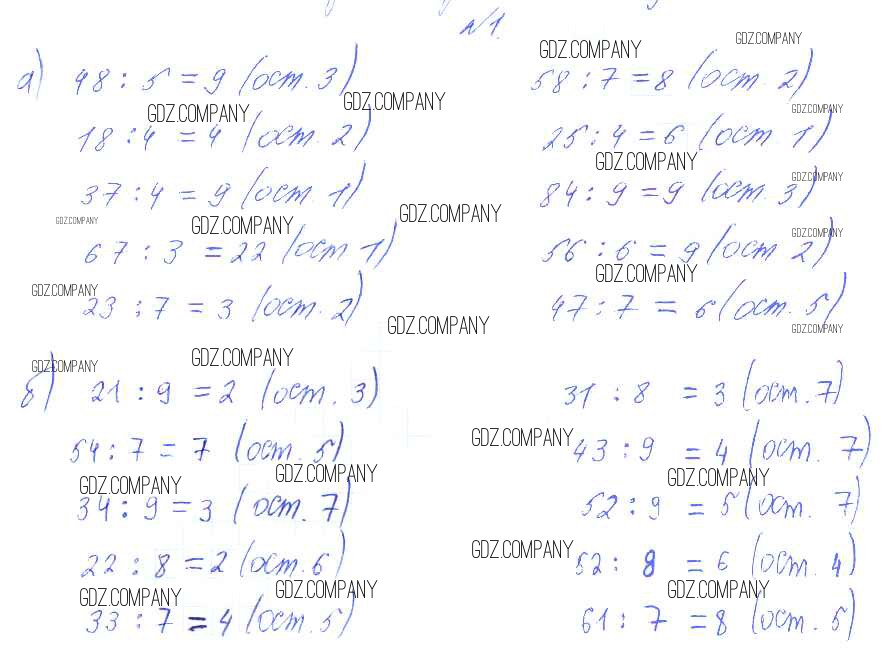 №1.
GDZ.COMPANY GDZ.COMPANY
а) 48 : 5 = 9 (ост. 3) 58 : 7 = 8 (ост. 2)
GDZ.COMPANY GDZ.COMPANY GDZ.COMPANY
18 : 4 = 4 (ост. 2) 25 : 4 = 6 (ост 1)
GDZ.COMPANY GDZ.COMPANY
37 : 4 = 9 (ост. 1) 84 : 9 = 9 (ост. 3)
GDZ.COMPANY GDZ.COMPANY GDZ.COMPANY GDZ.COMPANY
67 : 3 = 22 (ост 1) 56 : 6 = 9 (ост 2)
GDZ.COMPANY GDZ.COMPANY
23 : 7 = 3 (ост. 2) 47 : 7 = 6 (ост. 5)
GDZ.COMPANY GDZ.COMPANY
GDZ.COMPANY GDZ.COMPANY
б) 21 : 9 = 2 (ост. 3) 31 : 8 = 3 (ост. 7)
GDZ.COMPANY
54 : 7 = 7 (ост. 5) 43 : 9 = 4 (ост. 7)
GDZ.COMPANY GDZ.COMPANY GDZ.COMPANY
34 : 9 = 3 (ост. 7) 52 : 9 = 5 (ост. 7)
GDZ.COMPANY
22 : 8 = 2 (ост. 6) 52 : 8 = 6 (ост. 4)
GDZ.COMPANY GDZ.COMPANY GDZ.COMPANY
33 : 7 = 4 (ост. 5) 61 : 7 = 8 (ост. 5)